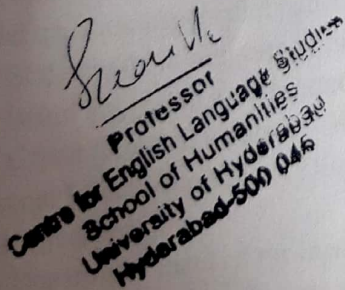 Professor
Centre for English Language Studies
School of Humanities
University of Hyderabad
Hyderabad-500 046